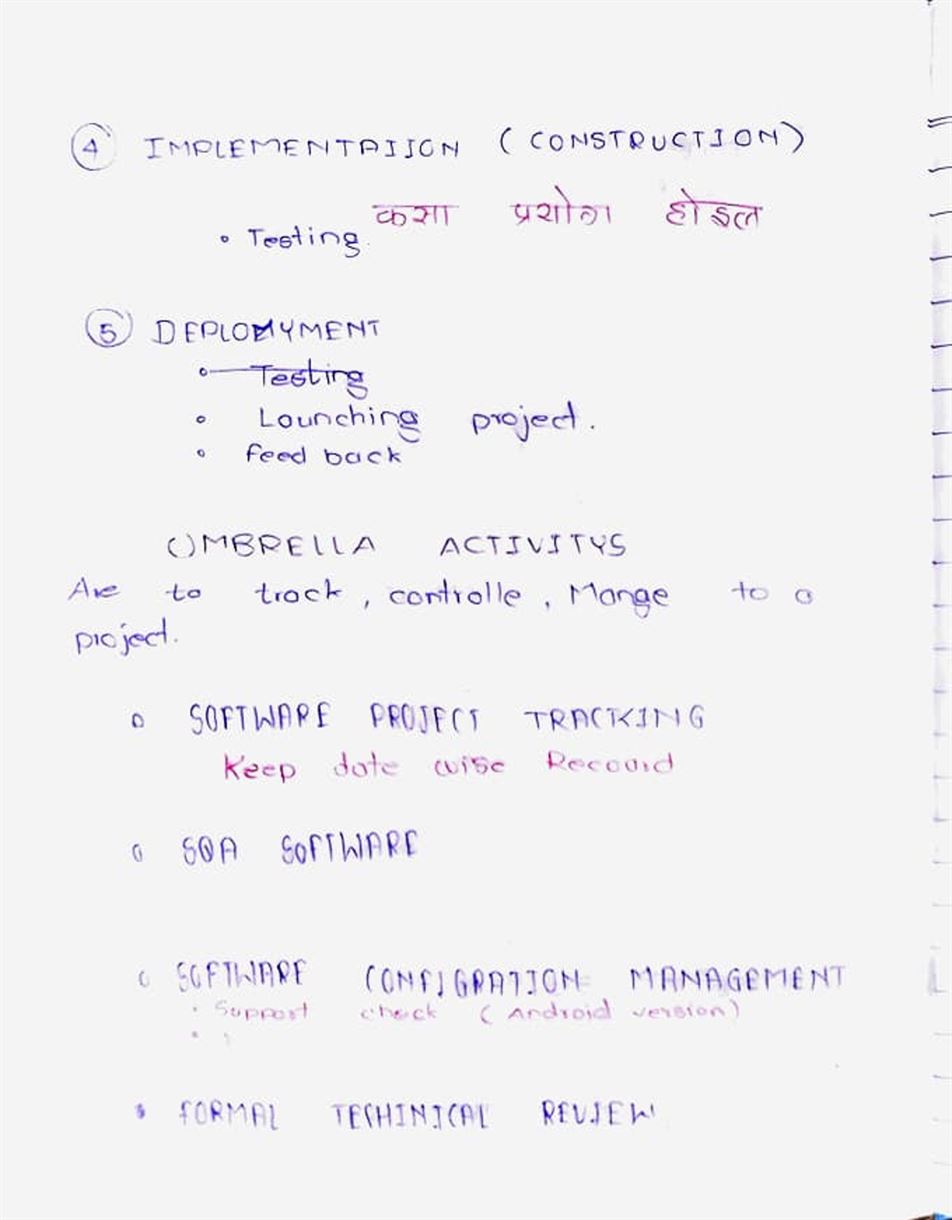 4 IMPLEMENTATION (CONSTRUCTION)
कसा प्रयोग होइल
• Testing.
5 DEPLOMYMENT
• Testing
• Lounching project.
• feed back
UMBRELLA ACTIVITYS
Are to track, controlle, Mange to a
project.
• SOFTWARE PROJECT TRACKING
Keep date wise Recoard
• SQA SOFTWARE
• SOFTWARE CONFIGRATION MANAGEMENT
• Suppost check (Android version)
• FORMAL TECHINICAL REVIEW